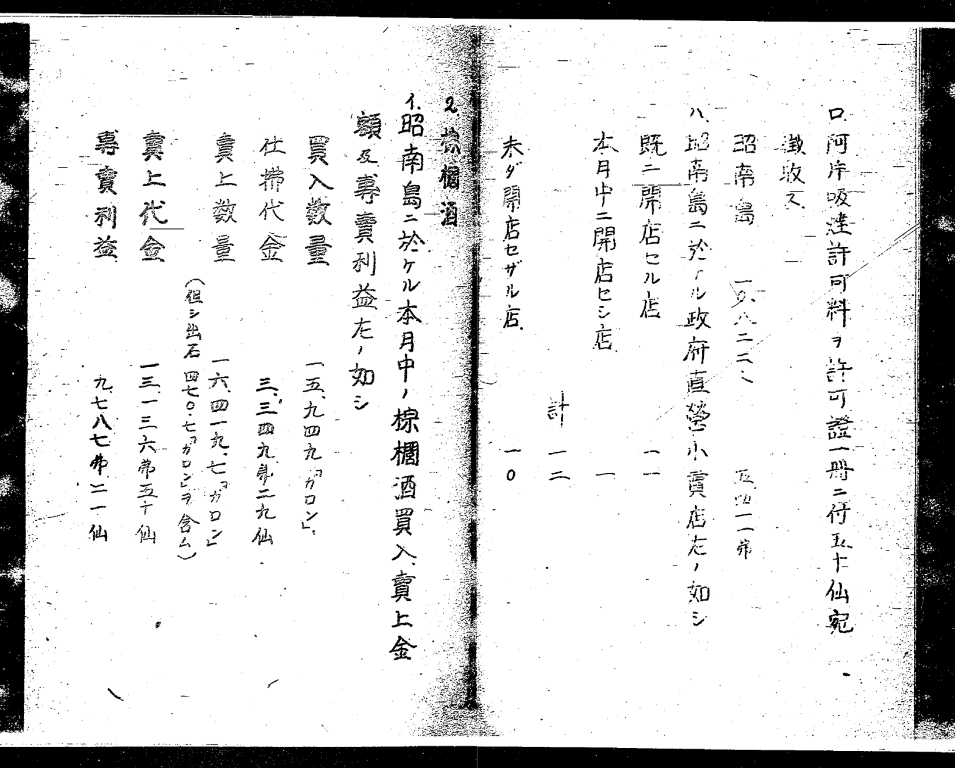 ロ、阿片吸煙許可料ヲ許可證一冊ニ付五十仙宛
徴收ス
昭南島 一〇、八二二、 五、四一一弗
ハ、昭南島ニ於ケル政府直營小賣店左ノ如シ
既ニ開店セル店 一一
本月中ニ開店セシ店 一
計 一二
未ダ開店セザル店 一〇
2. 棕櫚酒
1. 昭南島ニ於ケル本月中ノ棕櫚酒買入、賣上金
額及專賣利益左ノ如シ
買入數量 一五、九四九「ガロン」
仕拂代金 三、三四九弗二九仙
賣上數量 一六、四一九、七「ガロン」
(但シ出石 四七〇.七「ガロン」ヲ含ム)
賣上代金 一三、一三六弗五十仙
專賣利益 九、七八七弗二一仙